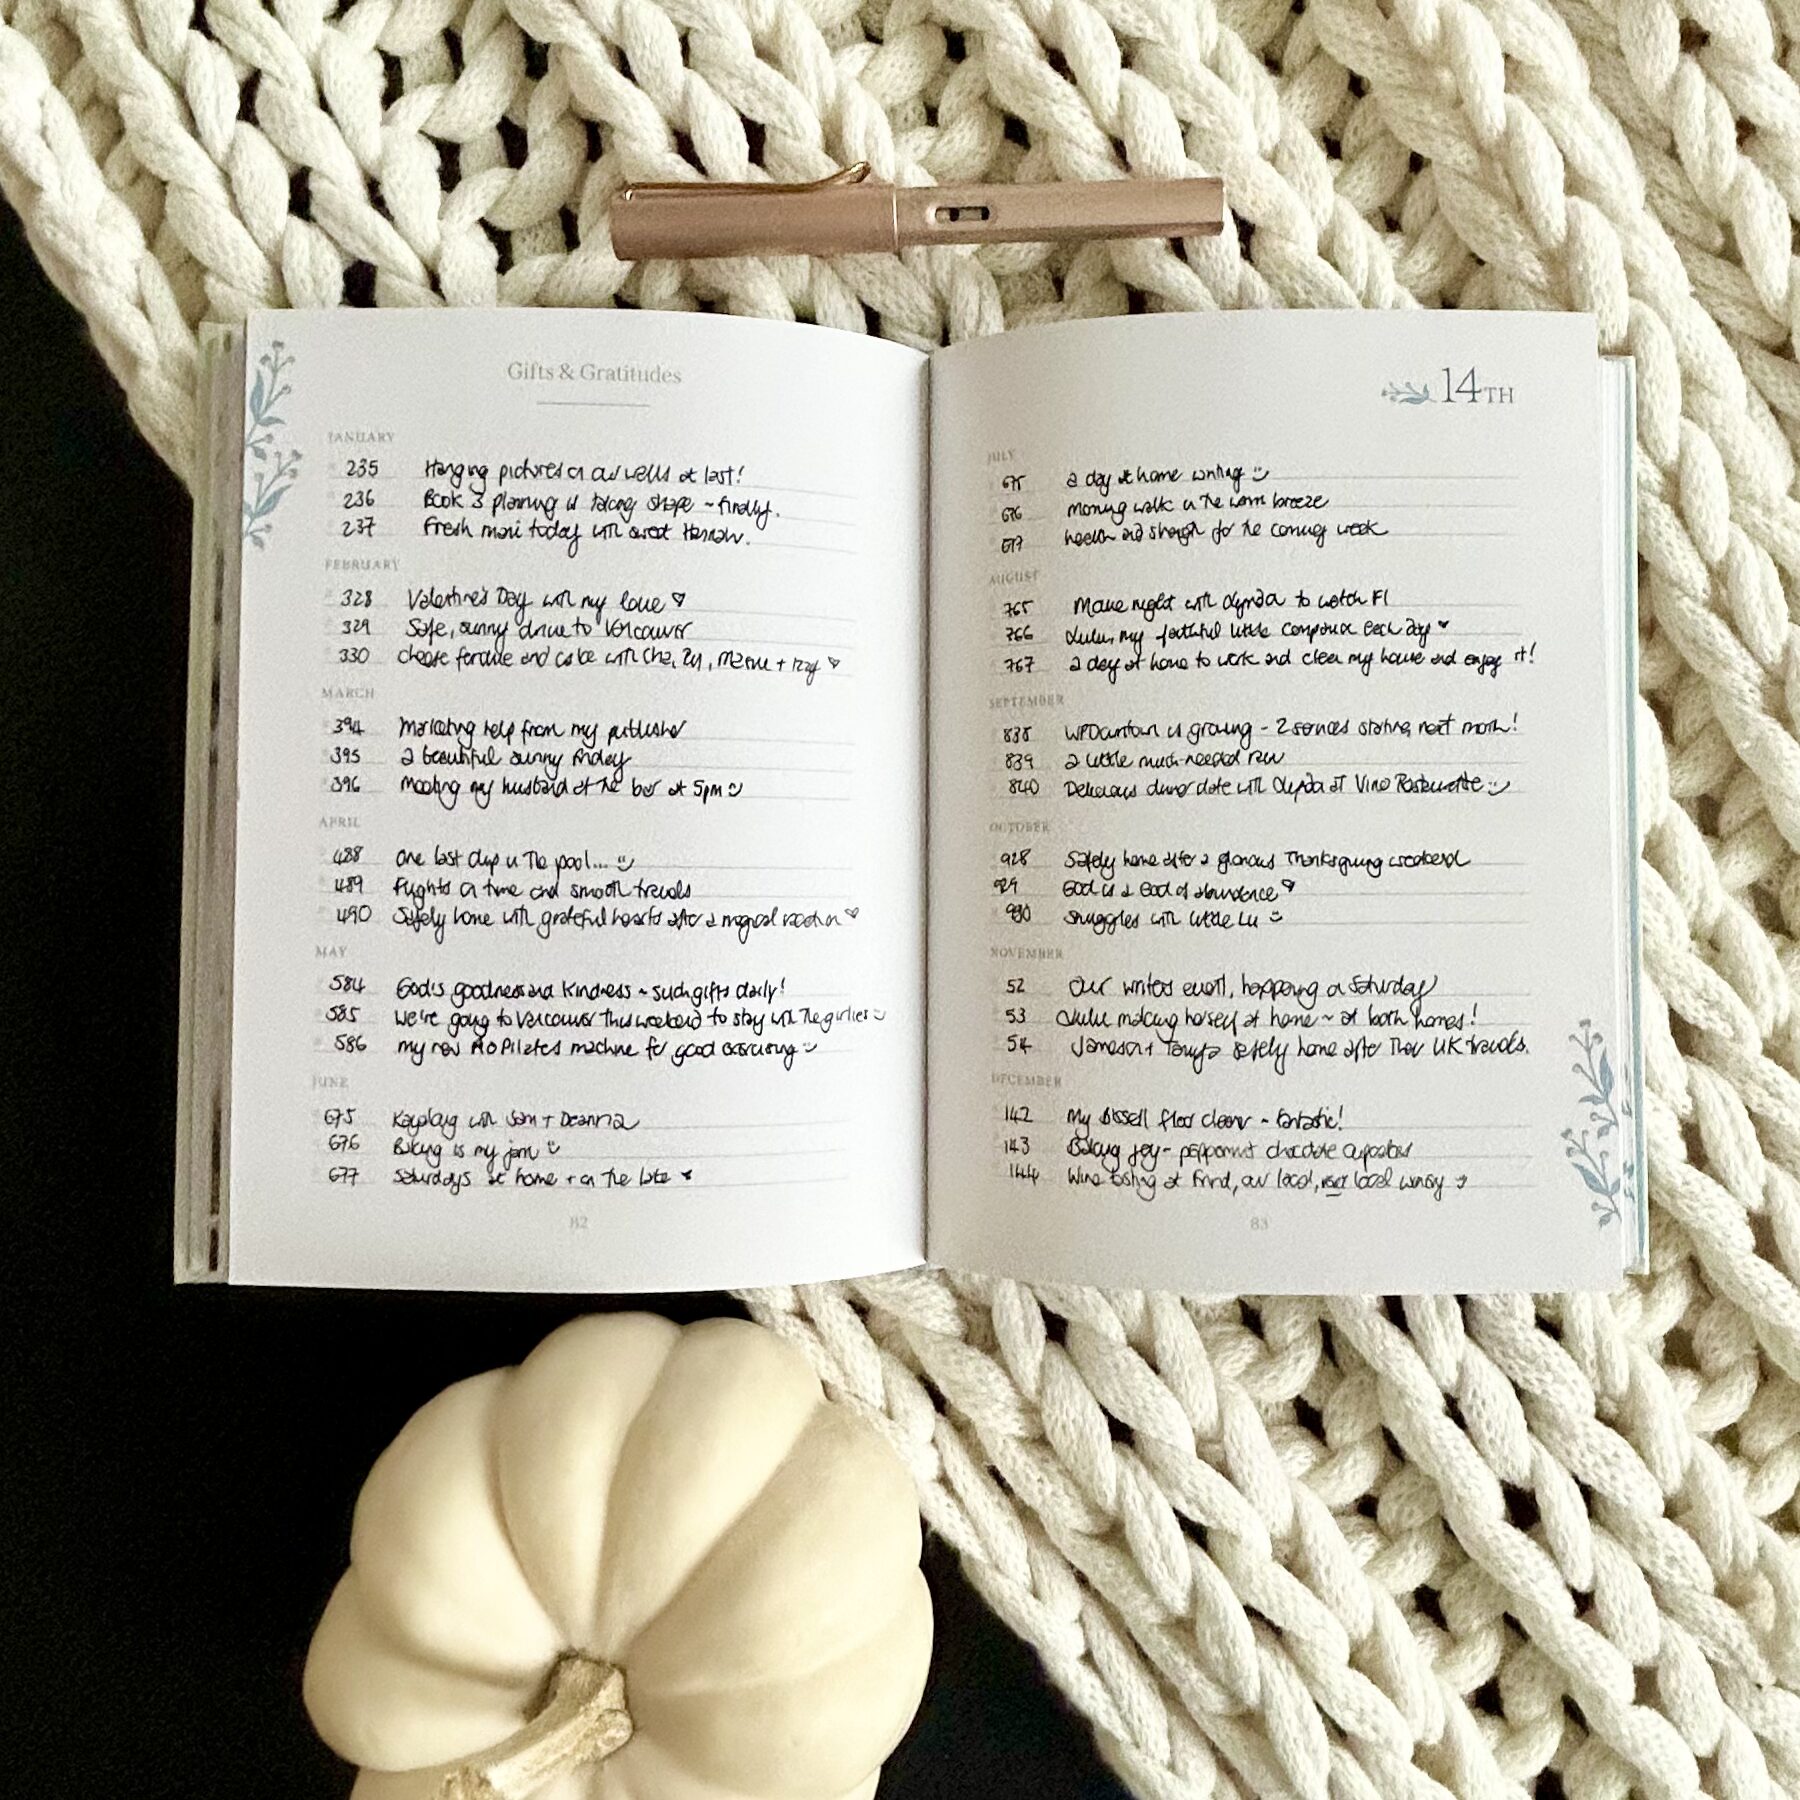 Gifts & Gratitudes
JANUARY
235 Hanging pictures on our walls at last!
236 Book 3 planning is taking shape ~ finally.
237 Fresh mani today with sweet Hannah.
FEBRUARY
328 Valentine's Day with my love ♡
329 Safe, sunny drive to Vancouver
330 cheese fondue and cake with + Izzy ♡
MARCH
394 Marketing help from my publisher
395 a beautiful sunny Friday
396 Meeting my husband at the bar at 5pm :)
APRIL
488 One last dip in the pool... :)
489 Flights on time and smooth travels
490 Safely home with grateful hearts after a magical vacation ♡
MAY
584 God's goodness and kindness ~ such gifts daily!
585 we're going to Vancouver this weekend to stay with the girlies :)
586 my new Pilates machine for good exercising :)
JUNE
675 Kayaking with Sam + Deanna
676 Baking is my jam :)
677 Saturdays at home + on the lake ♥
82
14TH
JULY
675 a day at home writing :)
676 morning walk in the warm breeze
677 health and strength for the coming week
AUGUST
765 Movie night with to watch F1
766 Lulu, my faithful little companion each day ♥
767 a day at home to work and clean my house and enjoy it!
SEPTEMBER
838 is growing - 2 services starting next month!
839 a little much-needed rain
840 Delicious dinner date with at Vino :)
OCTOBER
928 Safely home after a glorious Thanksgiving weekend
929 God is a God of abundance ♡
930 Snuggles with little Lu :)
NOVEMBER
52 Our writers event, happening on Saturday
53 Lulu making herself at home ~ at both homes!
54 Jameson + Tanya safely home after their UK travels.
DECEMBER
142 My Bissell floor cleaner ~ fantastic!
143 Baking joy ~ peppermint chocolate cupcakes
144 Wine tasting at Frind, our local, local winery :)
83